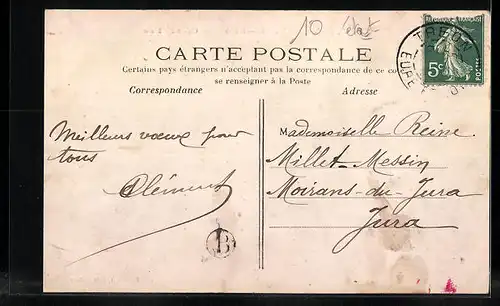 10
CARTE POSTALE
Certains pays étrangers n'acceptant pas la correspondance de ce co
se renseigner à la Poste
Correspondance
Adresse
RÉPUBLIQUE FRANÇAISE
5c
POSTES
EURE
Meilleurs vœux pour
tous
Clément
B
Mademoiselle Reine
Millet-Messin
Moirans-du-Jura
Jura